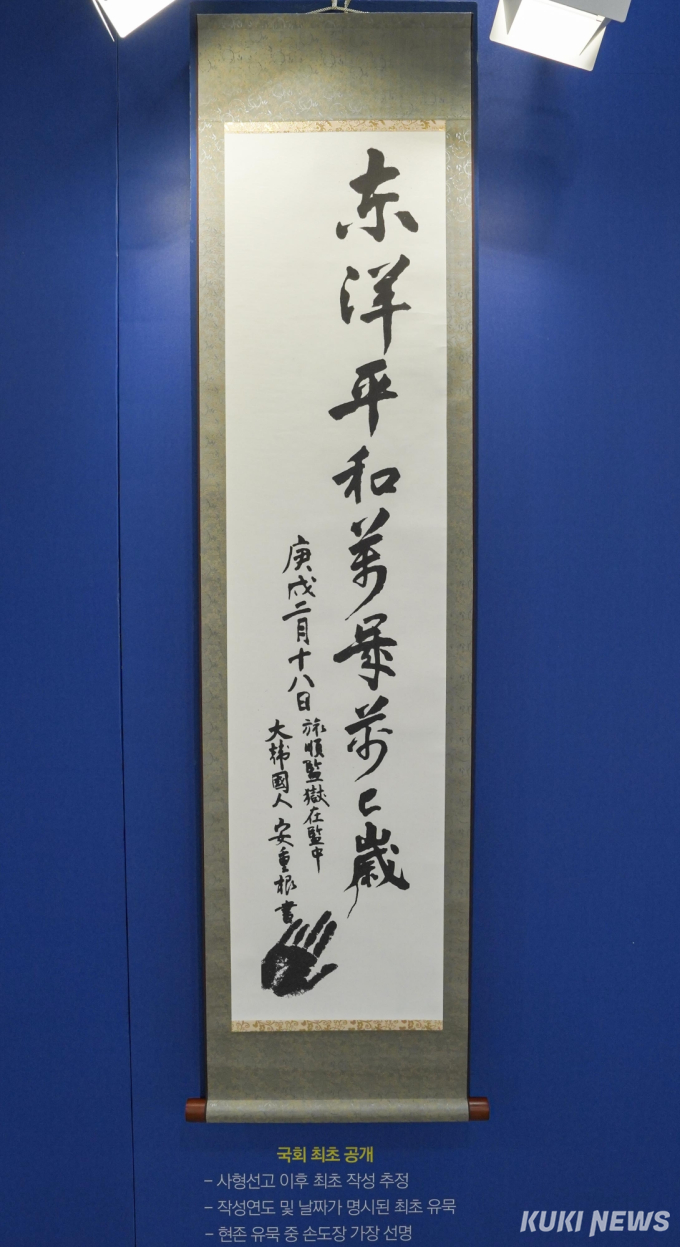 東洋平和萬歲萬〻歲
庚戌二月十八日
旅順監獄在監中
大韓國人 安重根 書
국회 최초 공개
- 사형선고 이후 최초 작성 추정
- 작성연도 및 날짜가 명시된 최초 유묵
- 현존 유묵 중 손도장 가장 선명
KUKI NEWS